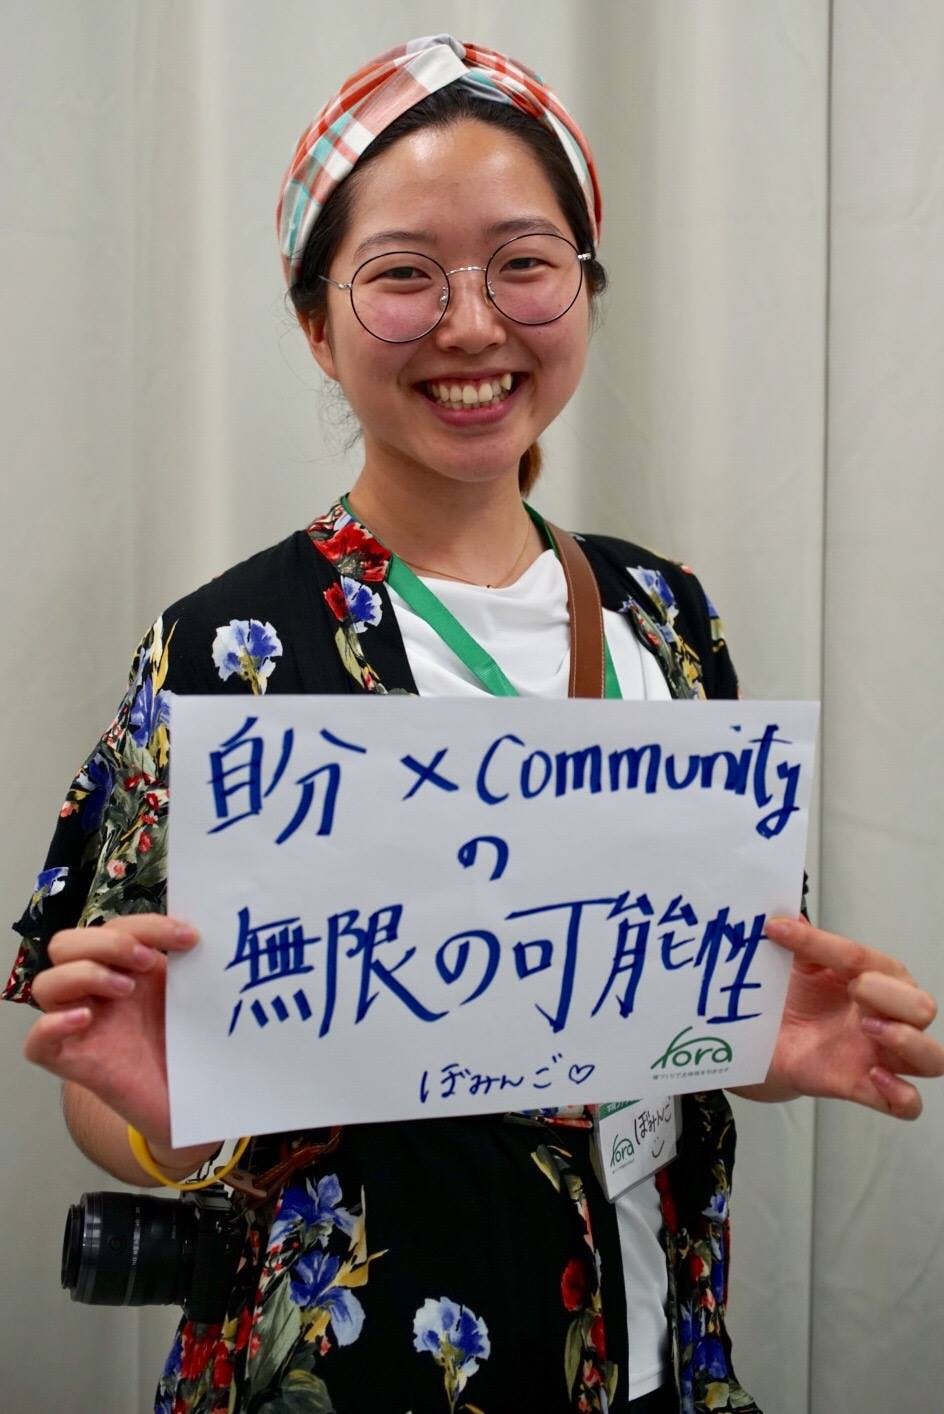 自分×Community
の
無限の可能性
ぽみんご♡
fora
fora
ぽみんご